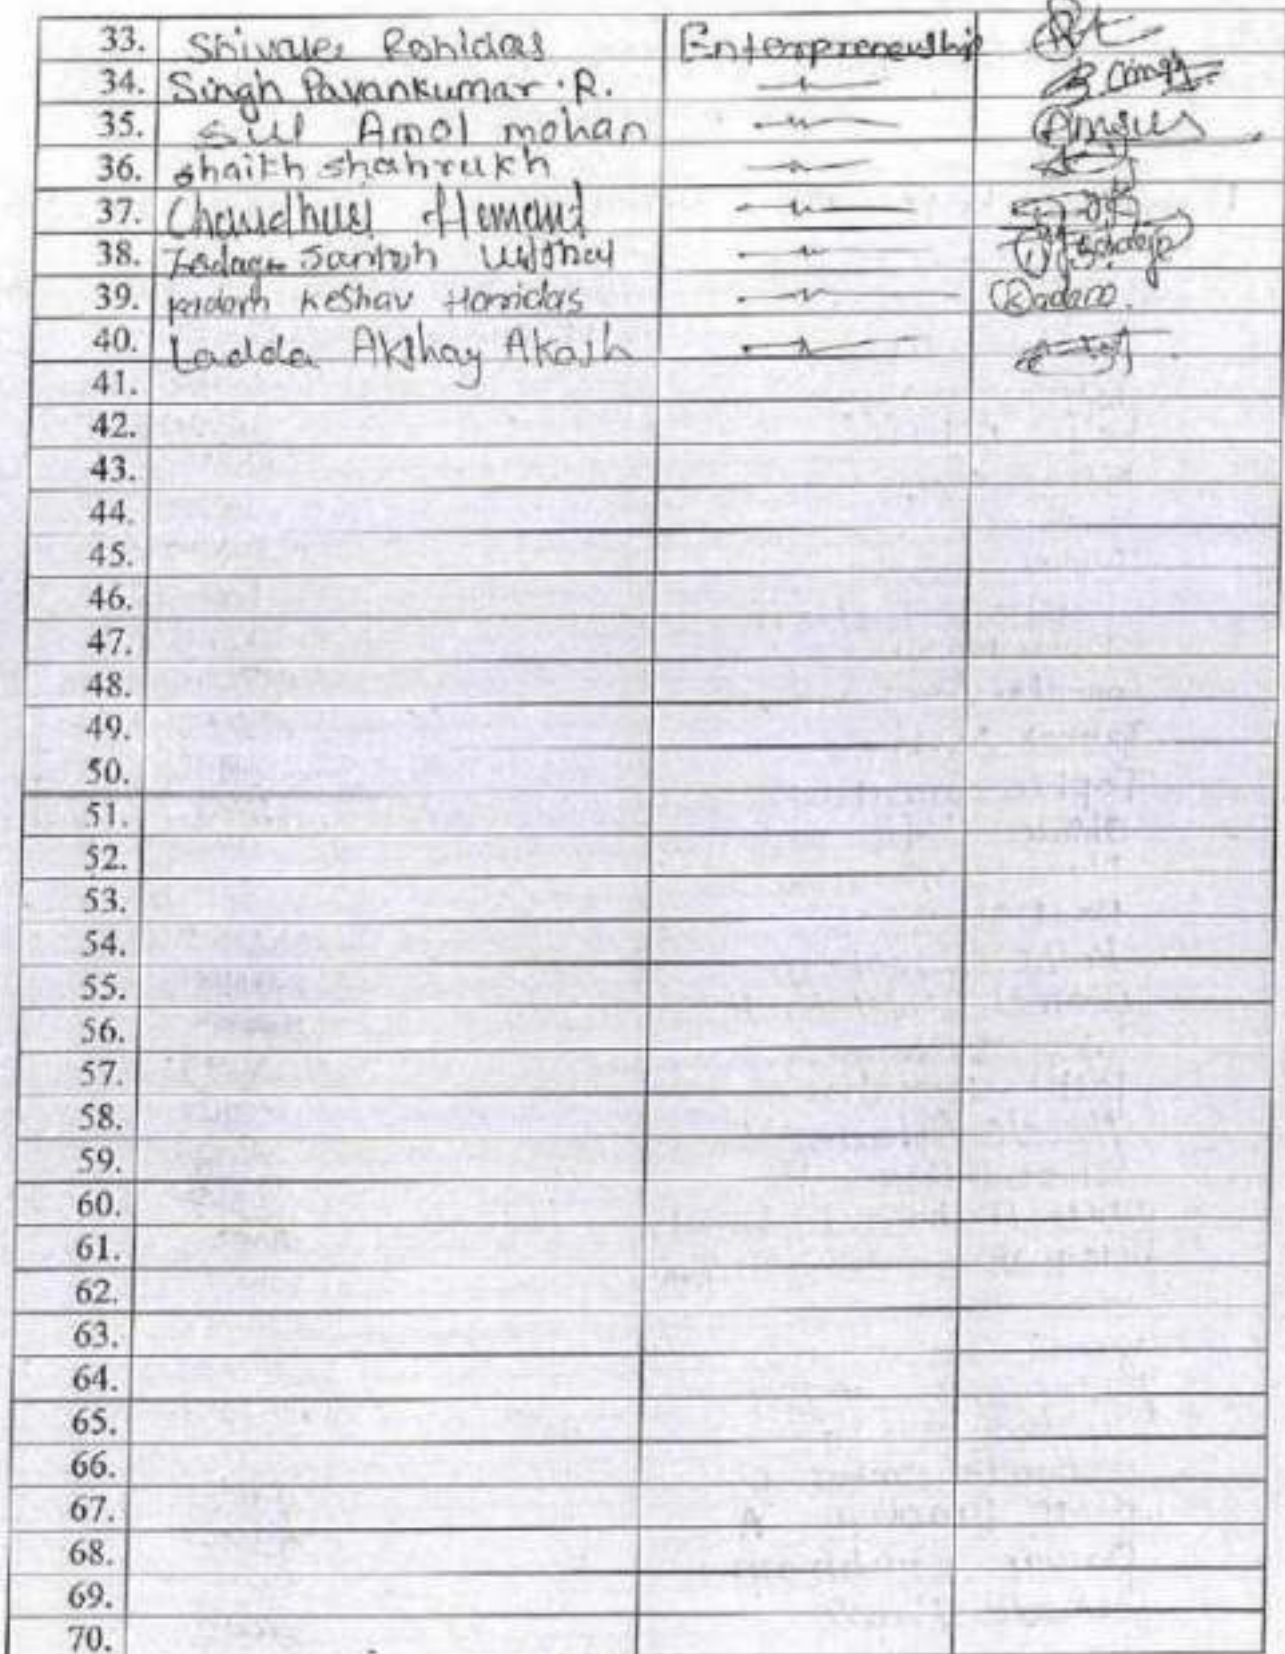 33. Shivale Rohidas Enterpreneuship
34. Singh Pavankumar . R. —〃—
35. Sul Amol mohan —〃—
36. shaikh shahrukh —〃—
37. Chaudhari Hemant —〃—
38. Santosh —〃—
39. kadam Keshav Haridas —〃— Kadam.
40. Ladda Akshay Akash —〃—
41.
42.
43.
44.
45.
46.
47.
48.
49.
50.
51.
52.
53.
54.
55.
56.
57.
58.
59.
60.
61.
62.
63.
64.
65.
66.
67.
68.
69.
70.